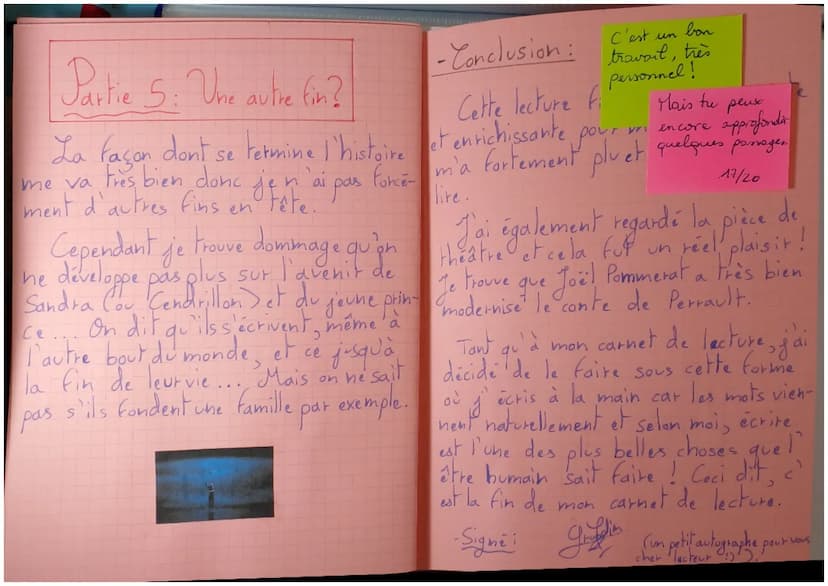 Partie 5: Une autre fin?
La façon dont se termine l'histoire
me va très bien donc je n'ai pas forcé-
ment d'autres fins en tête.
Cependant je trouve dommage qu'on
ne développe pas plus sur l'avenir de
Sandra (ou Cendrillon) et du jeune prin-
ce... On dit qu'ils s'écrivent, même à
l'autre bout du monde, et ce jusqu'à
la fin de leur vie... Mais on ne sait
pas s'ils fondent une famille par exemple.
-Conclusion:
C'est un bon
travail, très
personnel!
Mais tu peux
encore approfondir
quelques passages
17/20
Cette lecture
et enrichissante pour
m'a fortement plu et
lire.
J'ai également regardé la pièce de
théâtre et cela fut un réel plaisir!
Je trouve que Joël Pommerat a très bien
modernisé le conte de Perrault.
Tant qu'à mon carnet de lecture, j'ai
décidé de le faire sous cette forme
où j'écris à la main car les mots vien-
nent naturellement et selon moi, écrire
est l'une des plus belles choses que l'
être humain sait faire! Ceci dit, c'
est la fin de mon carnet de lecture.
-Signé:
(un petit autographe pour vous
cher lecteur :) ).